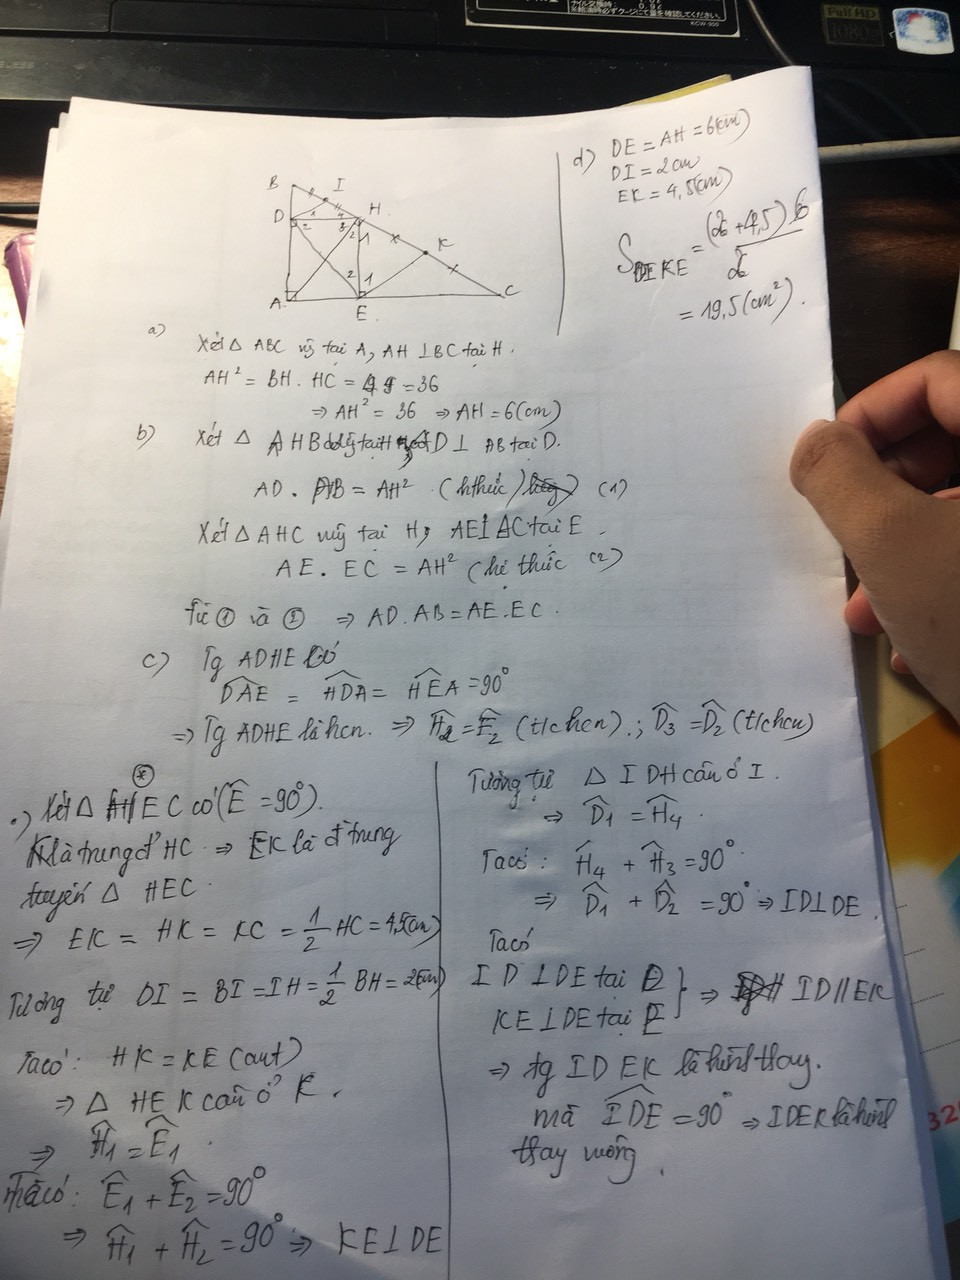 Full HD
1080
KCW-900
B
I
D
H
K
A
E
C
a) Xét Δ ABC vg tại A, AH ⊥ BC tại H.
AH² = BH. HC = 4.9 = 36
⇒ AH² = 36 ⇒ AH = 6(cm)
b) Xét Δ AHB tại H D ⊥ AB tại D.
AD. AB = AH² (hthức) (1)
Xét Δ AHC vg tại H, AE ⊥ AC tại E
AE. EC = AH² (hệ thức (2)
Từ ① và ② ⇒ AD. AB = AE. EC.
c) Tg ADHE có
DAE = HDA = HEA = 90°
⇒ Tg ADHE là hcn. ⇒ H2 = E2 (t/c hcn).; D3 = D2 (t/c hcn)
*
•) Xét Δ HEC có (E = 90°).
K là trung đ' HC ⇒ EK là đ trung
tuyến Δ HEC.
⇒ EK = HK = KC = 1/2 HC = 4,5(cm)
Tương tự DI = BI = IH = 1/2 BH = 2(cm)
Ta có: HK = KE (cmt)
⇒ Δ HEK cân ở K.
⇒ H1 = E1.
Mà có: E1 + E2 = 90°
⇒ H1 + H2 = 90° ⇒ KE ⊥ DE
Tương tự Δ IDH cân ở I.
⇒ D1 = H4.
Ta có: H4 + H3 = 90°.
⇒ D1 + D2 = 90° ⇒ ID ⊥ DE.
Ta có
ID ⊥ DE tại D
KE ⊥ DE tại E } ⇒ ID // EK
⇒ tg IDEK là hình thay.
mà IDE = 90° ⇒ IDEK là hình
thay vuông.
d) DE = AH = 6(cm)
DI = 2cm
EK = 4,5(cm)
S = (2 + 4,5) 6 / 2
= 19,5(cm²).
32